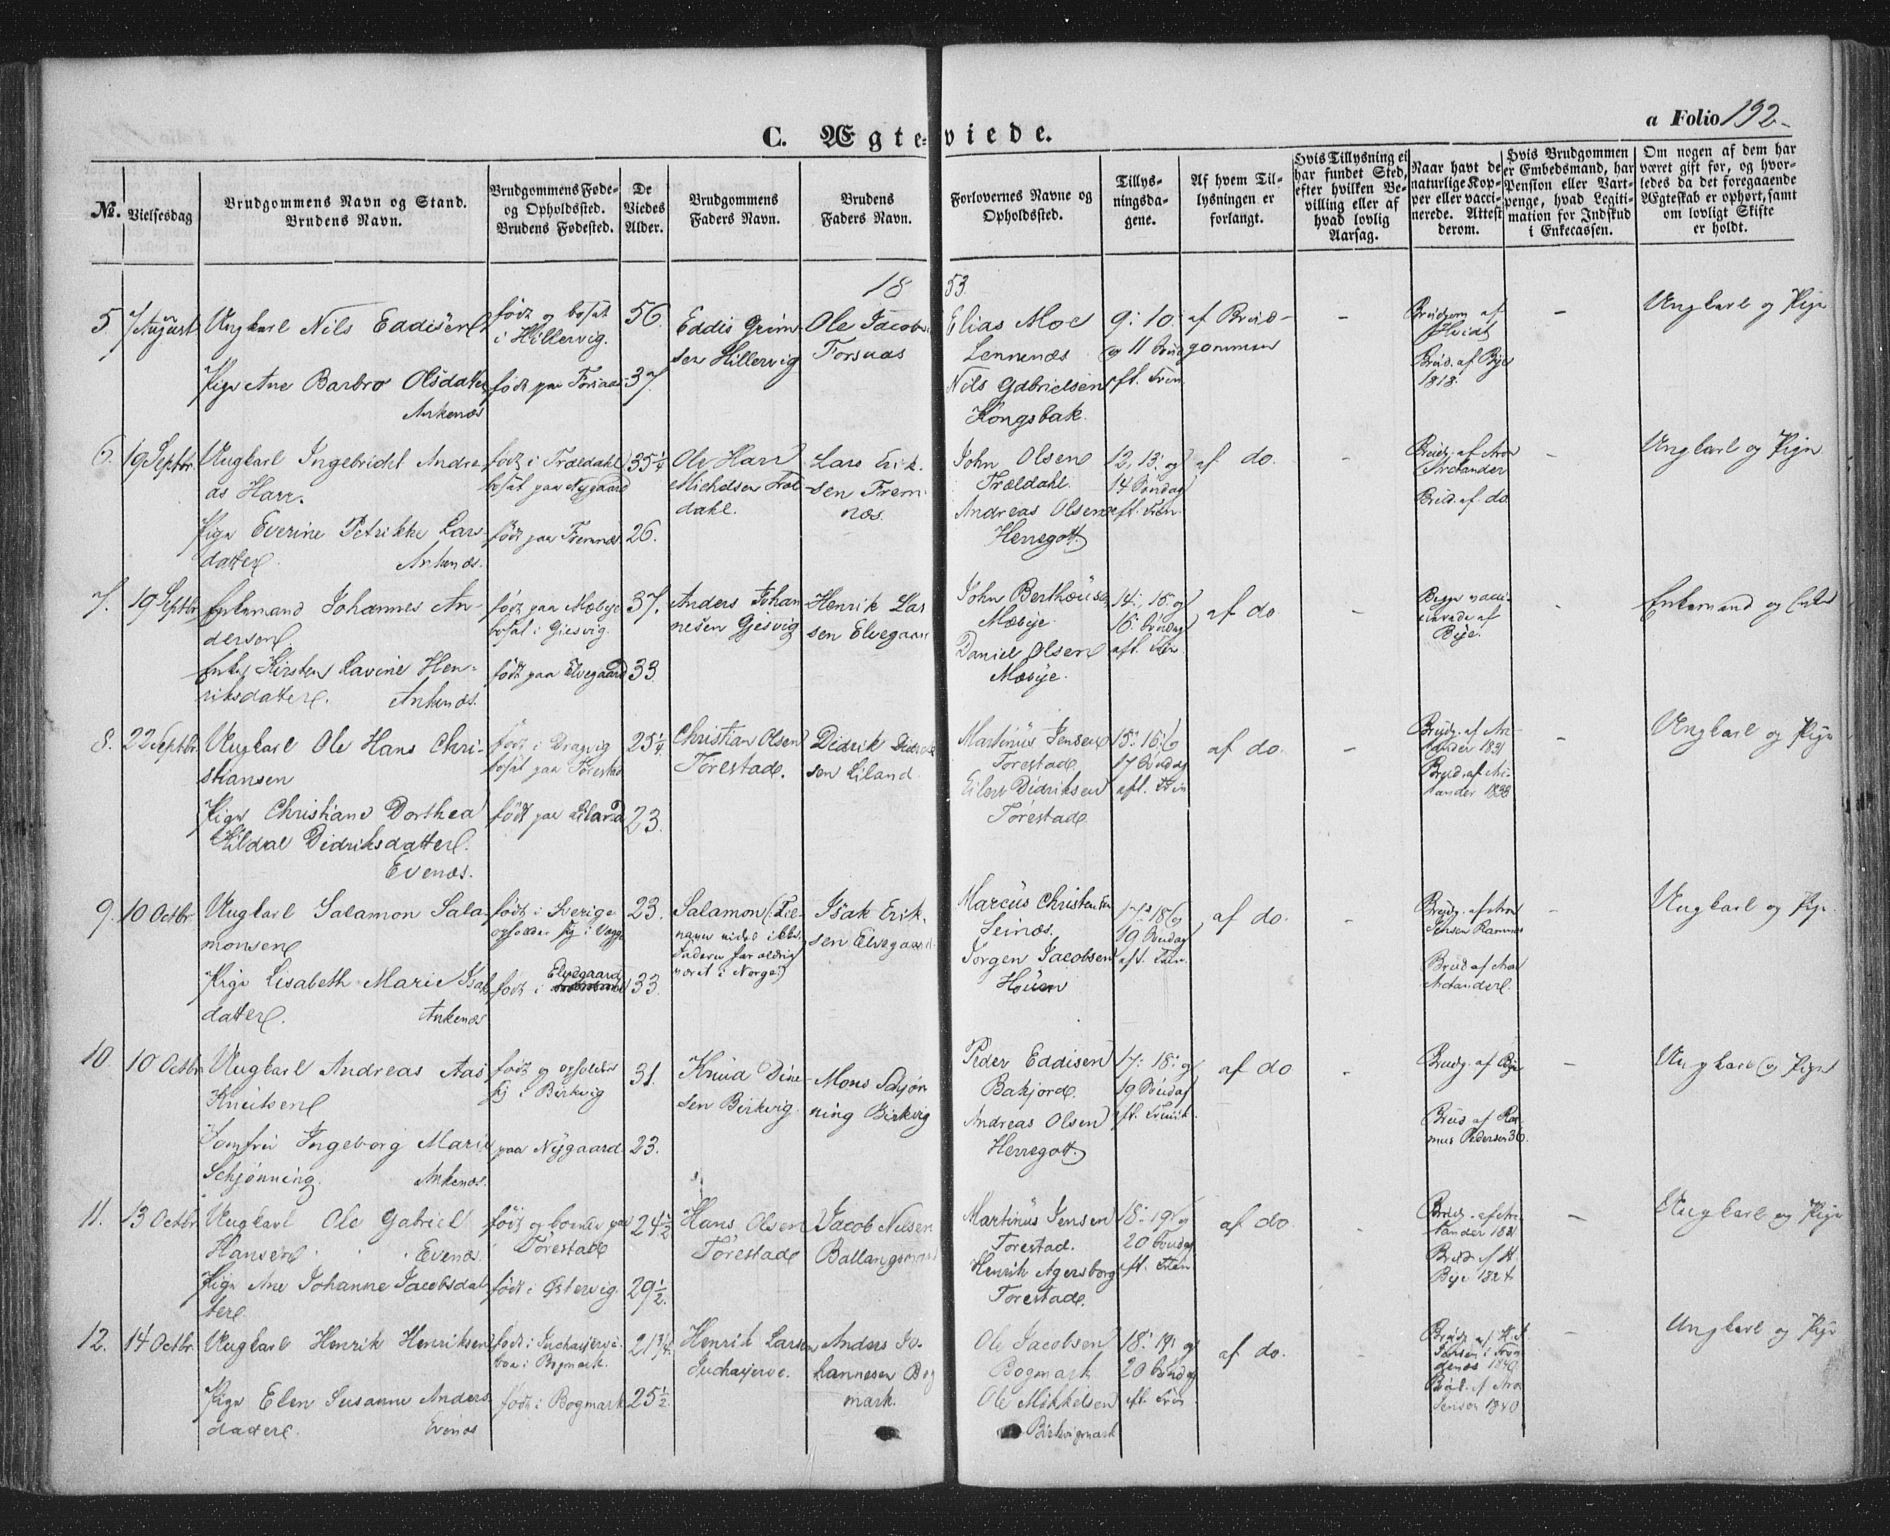 a Folio 192
C. Ægteviede.
No.
Vielsesdag
Brudgommens Navn og Stand.
Brudens Navn.
Brudgommens Føde-
og Opholdssted.
Brudens Fødested.
De
Viedes
Alder.
Brudgommens
Faders Navn.
Brudens
Faders Navn.
Forlovernes Navne og
Opholdssted.
Tillys-
ningsda-
gene.
Af hvem Til-
lysningen er
forlangt.
Hvis Tillysning ei
har fundet Sted,
efter hvilken Be-
villing eller af
hvad lovlig
Aarsag.
Naar havt de
naturlige Kop-
per eller vacci-
nerede. Attest
derom.
Hvis Brudgommen
er Embedsmand, har
Pension eller Vart-
penge, hvad Legiti-
mation for Indskud
i Enkecassen.
Om nogen af dem har
været gift før, og hvor-
ledes da det foregaaende
Ægteskab er ophørt, samt
om lovligt Skifte
er holdt.
1853
5. 7 August
Ungkarl Nils Eddisen
Pige Ane Barbro Olsdatter
Ankenæs
født og bosat
i Hillervig.
født paa Forsaa
56.
37.
Eddis Grim
sen Hillervig
Ole Jacob
Forsnæs
Elias Moe
Lennenæs
Nils Gabrielsen
Kongsbak.
9: 10:
og 11 Søndag
eft. Tren
af Brud-
gommen
-
Brudgom af
Hvidt
Brud. af Bye
1818.
-
Ungkarl og Pige
6. 19 Septbr.
Ungkarl Ingebrigt Andre
as Harr.
Pige Everine Petrikke Lars
datter. Ankenæs.
født i Trældahl
bosat paa Nygaard
født paa Fremnæs
35 1/4
26.
Ole Harr
Michelsen Træl
dahl.
Lars Erik
sen Frem
næs.
John Olsen
Trældahl.
Andreas Olsen
Herregott.
12, 13: og
14 Søndag
eft. Tren.
af do.
-
Brudg. af Aron
Arctander
Brud. af do
-
Ungkarl og Pige
7. 19 Septbr
Enkemand Johannes An-
dersen
Enke Kirsten Lavine Hen-
riksdatter. Ankenæs.
født paa Mæbye
bosat i Giesvig.
født paa Elvegaard
37.
33.
Anders Johan
nesen Gjesvig
Henrik Lar
sen Elvegaard
John Bertheusen
Mæbye.
Daniel Olsen
Mæbye.
14: 15: og
16: Søndag
eft. Tren
af do
-
Begge vacci-
nerede af
Bye.
-
Enkemand og Enke
8. 22 Septbr.
Ungkarl Ole Hans Chri-
stiansen
Pige Christiane Dorthea
Kildal Didriksdatter.
Evenæs.
født i Dragvig
bosat paa Tørestad
født paa Liland
25 1/4
23.
Christian Olsen
Tørestad.
Didrik Didrik
sen Liland.
Martinus Jensen
Tørestad.
Eilert Didriksen
Tørestad
15: 16: og
17 Søndag
eft. Trin
af do.
-
Brudg. af Arc
tander 1831
Brud. af Arc
tander 1833
-
Ungkarl og Pige
9. 10 Octbr.
Ungkarl Salamon Sala-
monsen
Pige Lisabeth Marie Isak
datter. Ankenæs
født i Sverige
opholder sig i
født i Elvegaard
23.
33.
Salamon (Til-
navn vides ikke.
Faderen har aldrig
været i Norge)
Isak Erik-
sen Elvegaard
Marcus Christensen
Leinæs.
Jørgen Jacobsen
Houen
17: 18 og
19 Søndag
eft. Tren.
af do.
-
Brudg. af Aron
Jensen Ramnæs
Brud af Aron
Arctander.
-
Ungkarl og Pige
10. 10 Octbr.
Ungkarl Andreas Aas
Knutsen
Jomfru Ingeborg Marie
Schjønning. Ankenæs.
født og opholder
sig i Birkvig
paa Nygaard
31.
23.
Knud Dine
sen Birkvig.
Mons Schjøn
ning Birkvig
Peder Eddisen
Bakjord.
Andreas Olsen
Herregott.
17: 18: og
19 Søndag
eft. Trinit.
af do
-
Brudg. af Bye
Brud af Ras
mus Pedersen 36.
-
Ungkarl og Pige
11. 13 Octbr.
Ungkarl Ole Gabriel
Hansen Evenæs.
Pige Ane Johanne Jacobsdat-
ter.
født og boende paa
Tørestad
født i Østervig.
24 1/2
29 1/2.
Hans Olsen
Tørestad
Jacob Nilsen
Ballangsmark
Martinus Jensen
Torestad.
Henrik Agersborg
Torestad.
18: 19: og
20 Søndag
eft. Tren
af do.
-
Brudg. af Arc
tander 1831
Brud af H
Bye 1824
-
Ungkarl og Pige
12. 14 Octbr.
Ungkarl Henrik Henriksen
Pige Elen Susanne Anders
datter. Evenæs
boe i Bogmark.
født i Bogmark
21 3/4
25 1/2
Henrik Larsen
Anders Jo-
hannesen Bog
mark.
Ole Jacobsen
Bogmark
Ole Mikkelsen
Birkvigmark
18: 19: og
20 Søndag
eft. Tren
af do.
-
Jensen i Tron
denæs 1840
Brud. af Aron
Jensen 1840
-
Ungkarl og Pige